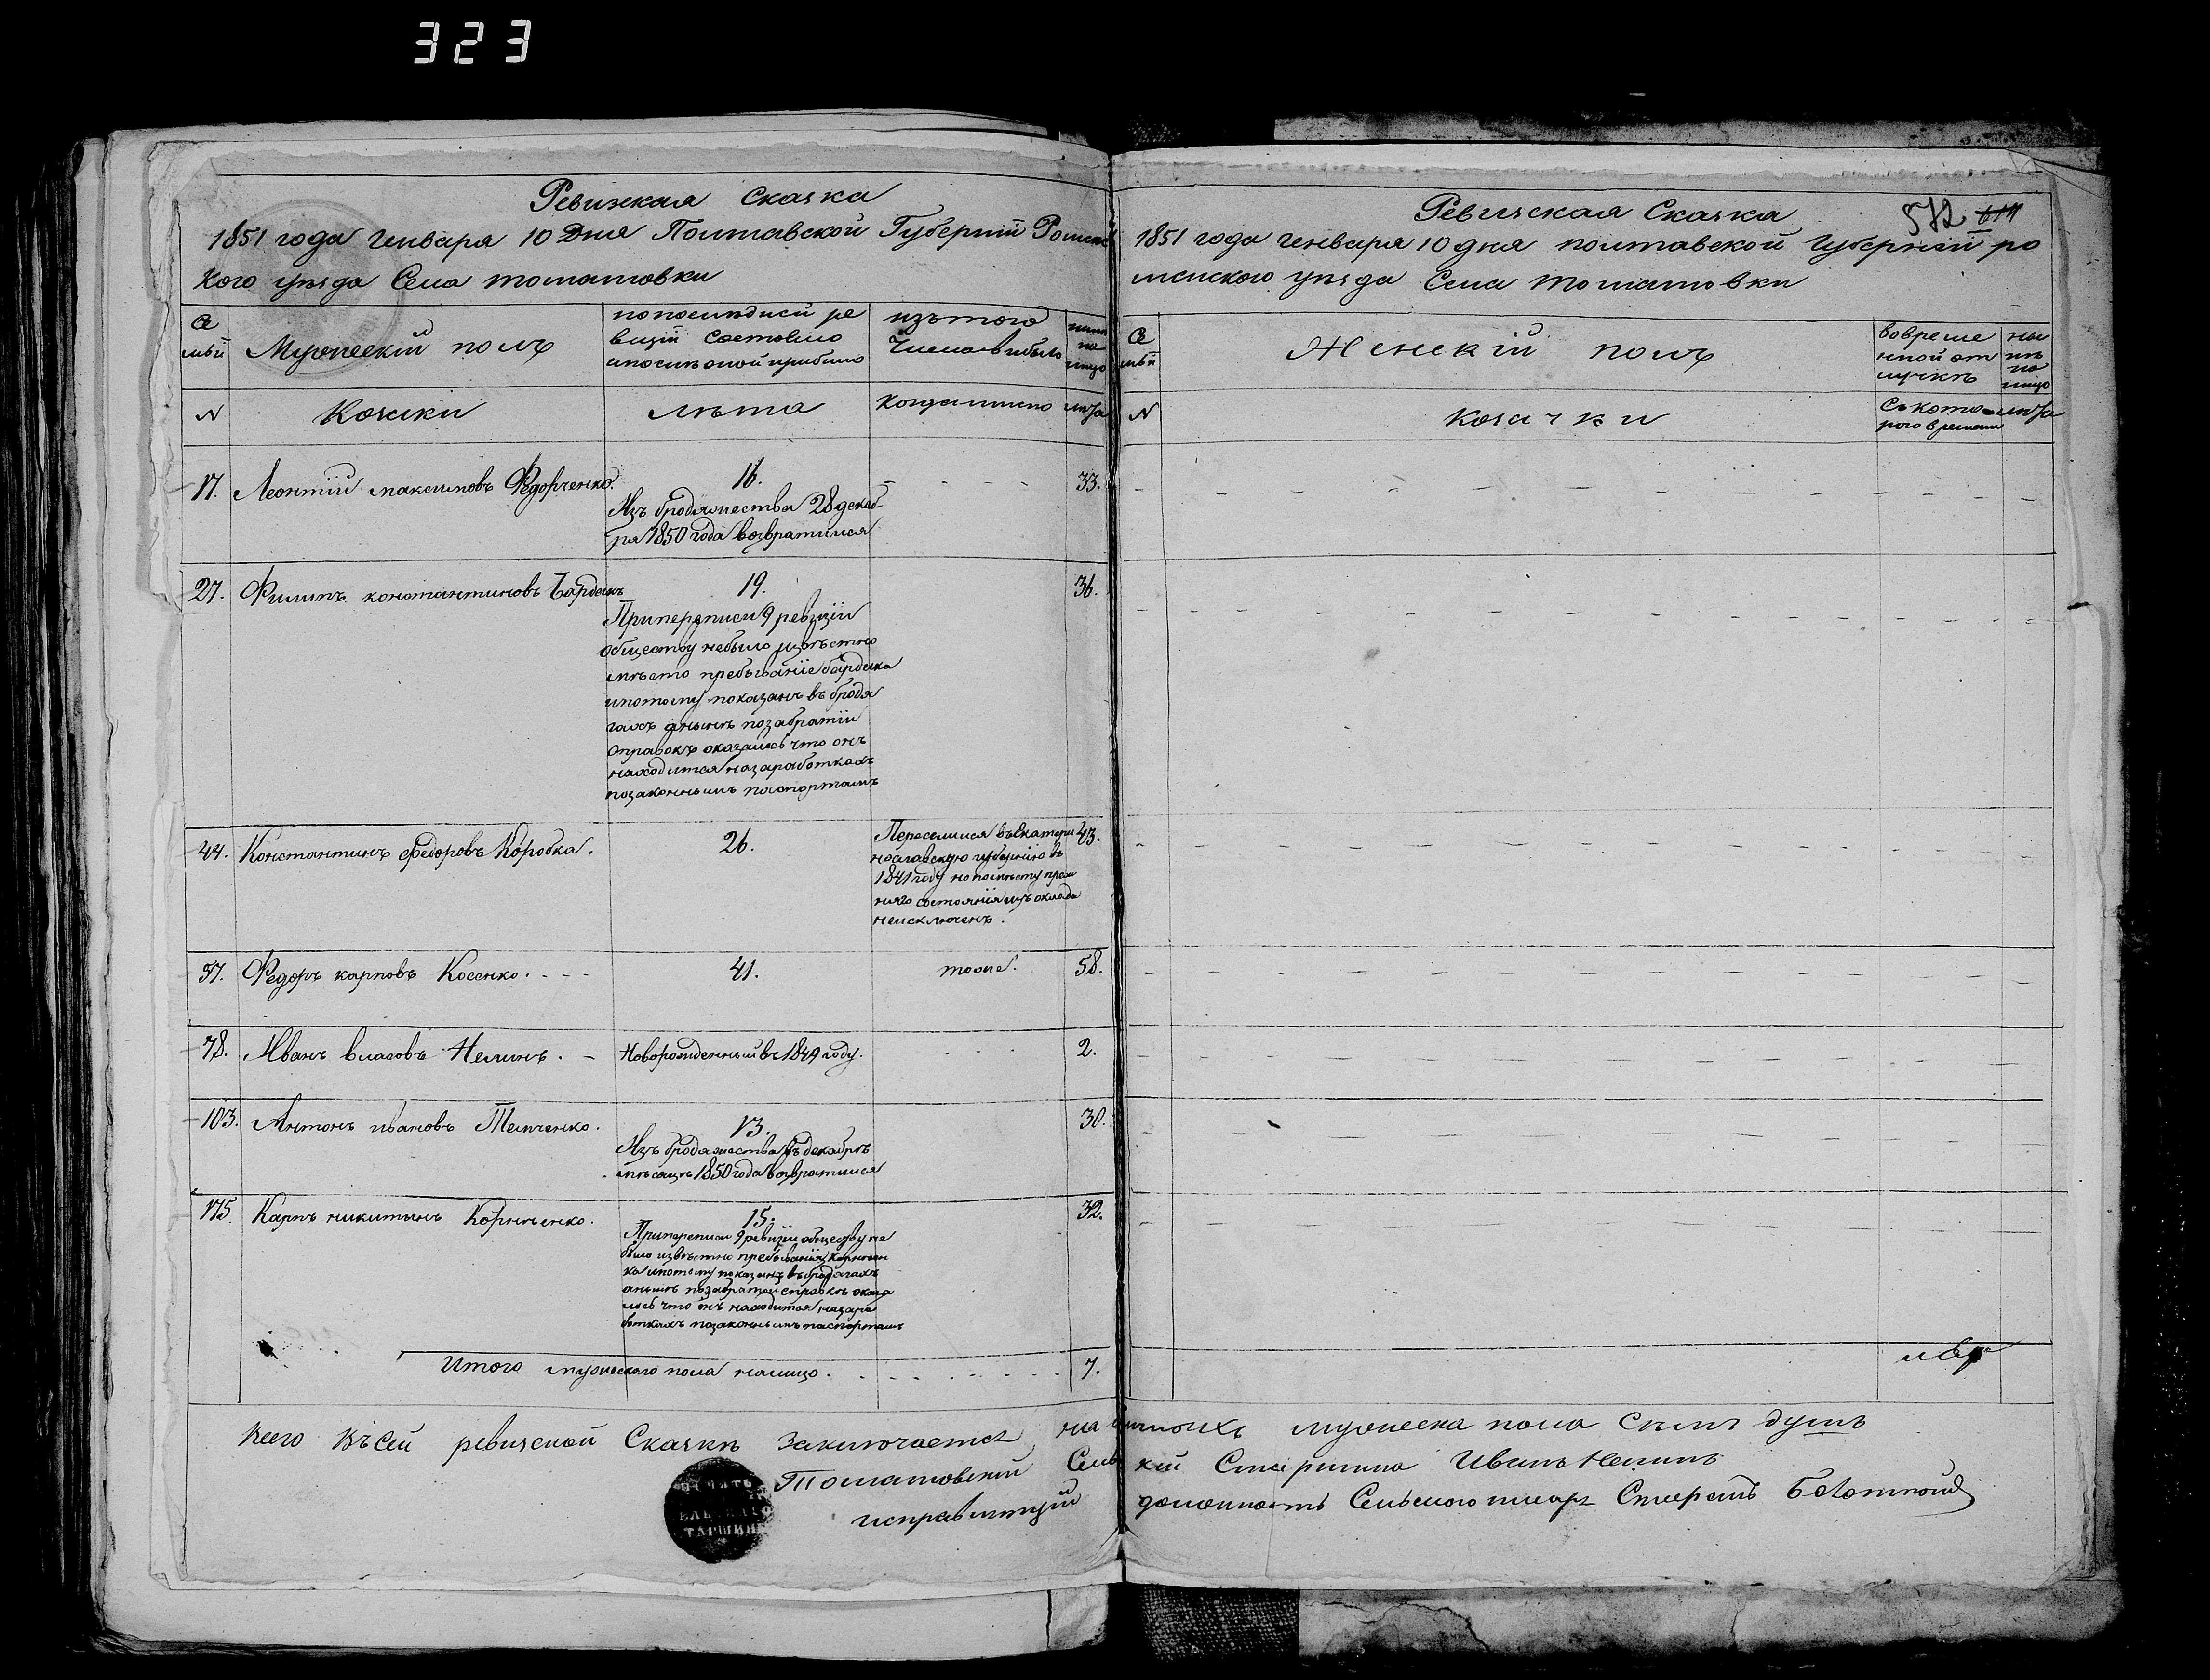 323
Ревизкая Сказка
1851 года Генваря 10 Дня Полтавской Губернiй Роменс
кого уезда Села толстовки
Се
мьи
Мужескiй полъ
по последней ре
визiй Состояло
и после оной прибыло
изътого
Числа выбыло
ныне
на
лицо
N
Козаки
лета
Когда имено
лета
17. Леонтiй максимовъ Федорченко. 16. 33.
Изъ бродяжества 28 декаб-
ря 1850 года возвратился
27. Филипъ константиновъ Бардакъ 19. 36.
При переписи 9 ревизiи
обществу небыло известно
место пребыванiе бардака
и потому показанъ въ бродя
гахъ а ныне по забратiи
справокъ оказалось что онъ
находится на заработкахъ
по законнымъ паспортамъ
44. Константинъ федоровъ Коробка. 26. 43.
Переселился въ Екатери
нославскую губернiю въ
1841 году но по месту преж
няго состоянiя изъ оклада
не исключенъ.
57. Федоръ карповъ Косенко. 41. тоже. 58.
78. Иванъ власовъ Нелинъ. Новорожденный въ 1849 году. 2.
103. Антонъ ивановъ Темченко. 13. 30.
Изъ бродяжества въ декабре
месяце 1850 года возвратился
175. Карпъ никитинъ Корнiенко. 15. 32.
При переписи 9 ревизiи обществу не
было известно пребыванiя Корниен
ка и потому показанъ въ бродягахъ
а ныне по забратiи справокъ оказа
лось что онъ находится на зара
боткахъ по законнымъ паспортамъ
Итого мужескаго пола налицо. 7.
Ревизская Сказка
572 614
1851 года генваря 10 дня полтавской губернiй ро
менского уезда Села
Се
мьи
Женскiй полъ
во време
нной от
лучке
ны
не
на
лицо
N
Козачки
Съ кото
рого времени
лета
Всего въ сей ревизской Сказке Заключается на личныхъ мужеска пола семъ душъ
Сельскiй Старшина Иванъ Нелинъ
исправляющiй должность Сельского писаря